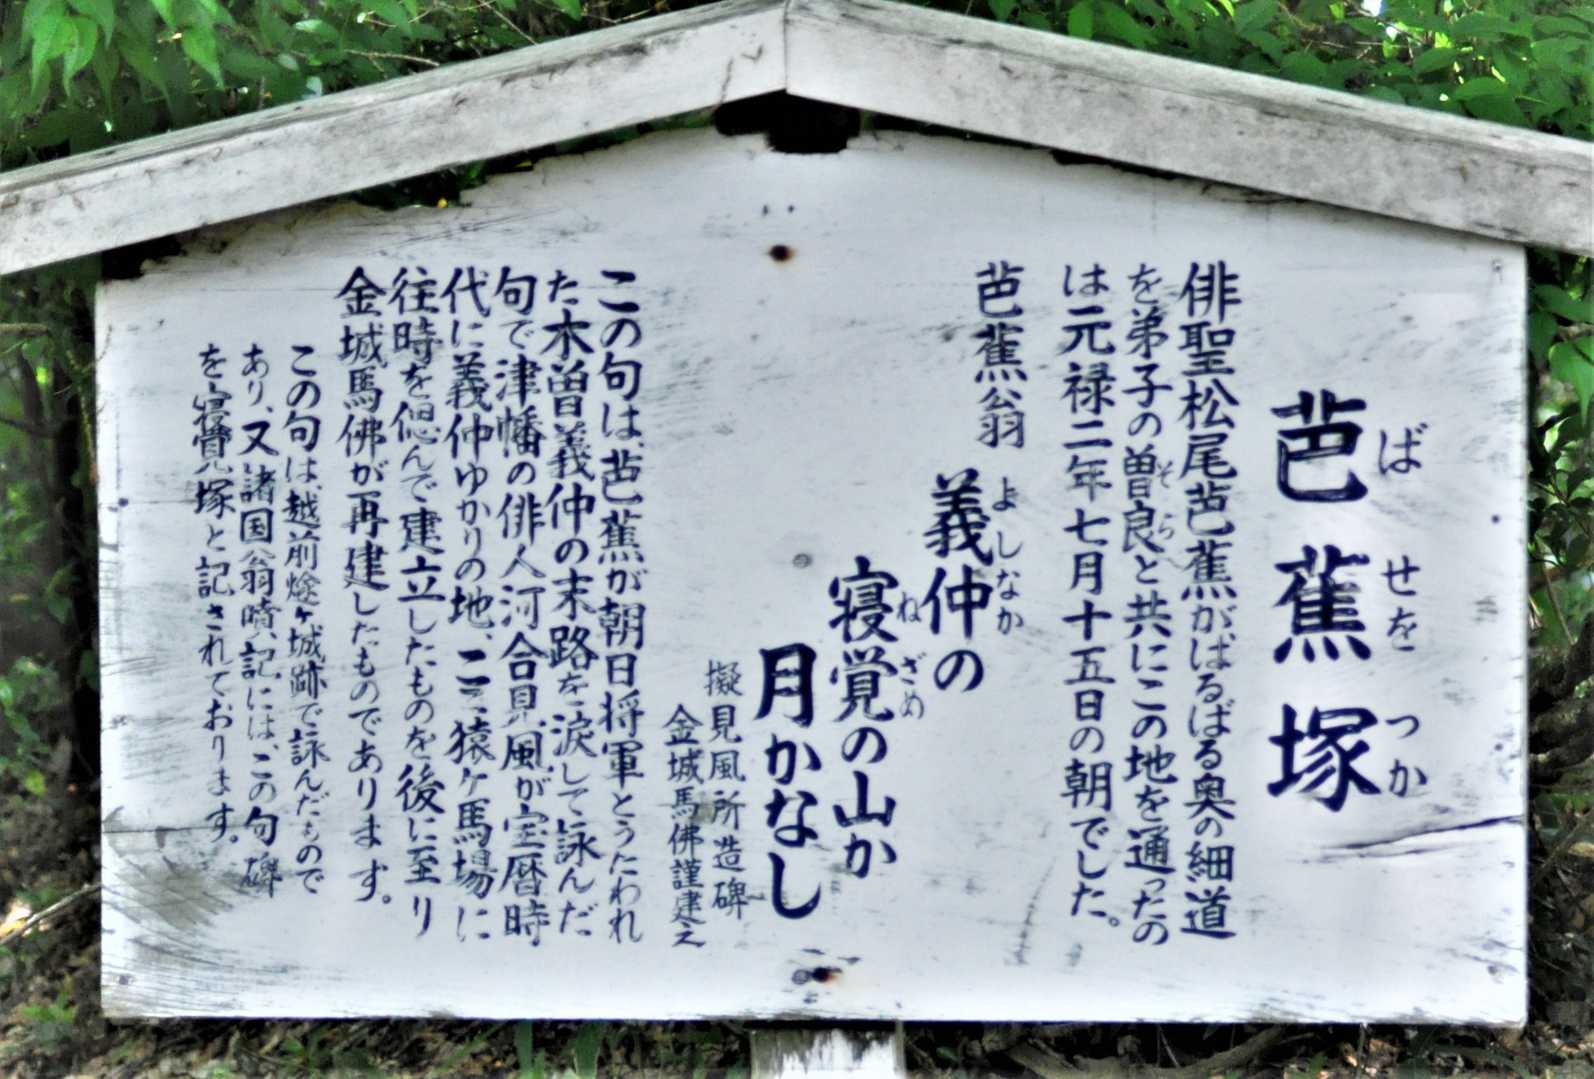 芭蕉塚
ばせをつか
俳聖松尾芭蕉がはるばる奥の細道
を弟子の曽良と共にこの地を通ったの
そら
は元禄二年七月十五日の朝でした。
芭蕉翁
義仲の
よしなか
寝覚の山か
ねざめ
月かなし
擬見風所造碑
金城馬佛謹建之
この句は、芭蕉が朝日将軍とうたわれ
た木曽義仲の末路を涙して詠んだ
句で津幡の俳人河合見風が宝暦時
代に義仲ゆかりの地、ここ猿ケ馬場に
往時を偲んで建立したものを後に至り
金城馬佛が再建したものであります。
この句は、越前燧ヶ城跡で詠んだもので
あり、又諸国翁墳記には、この句碑
を寝覚塚と記されております。